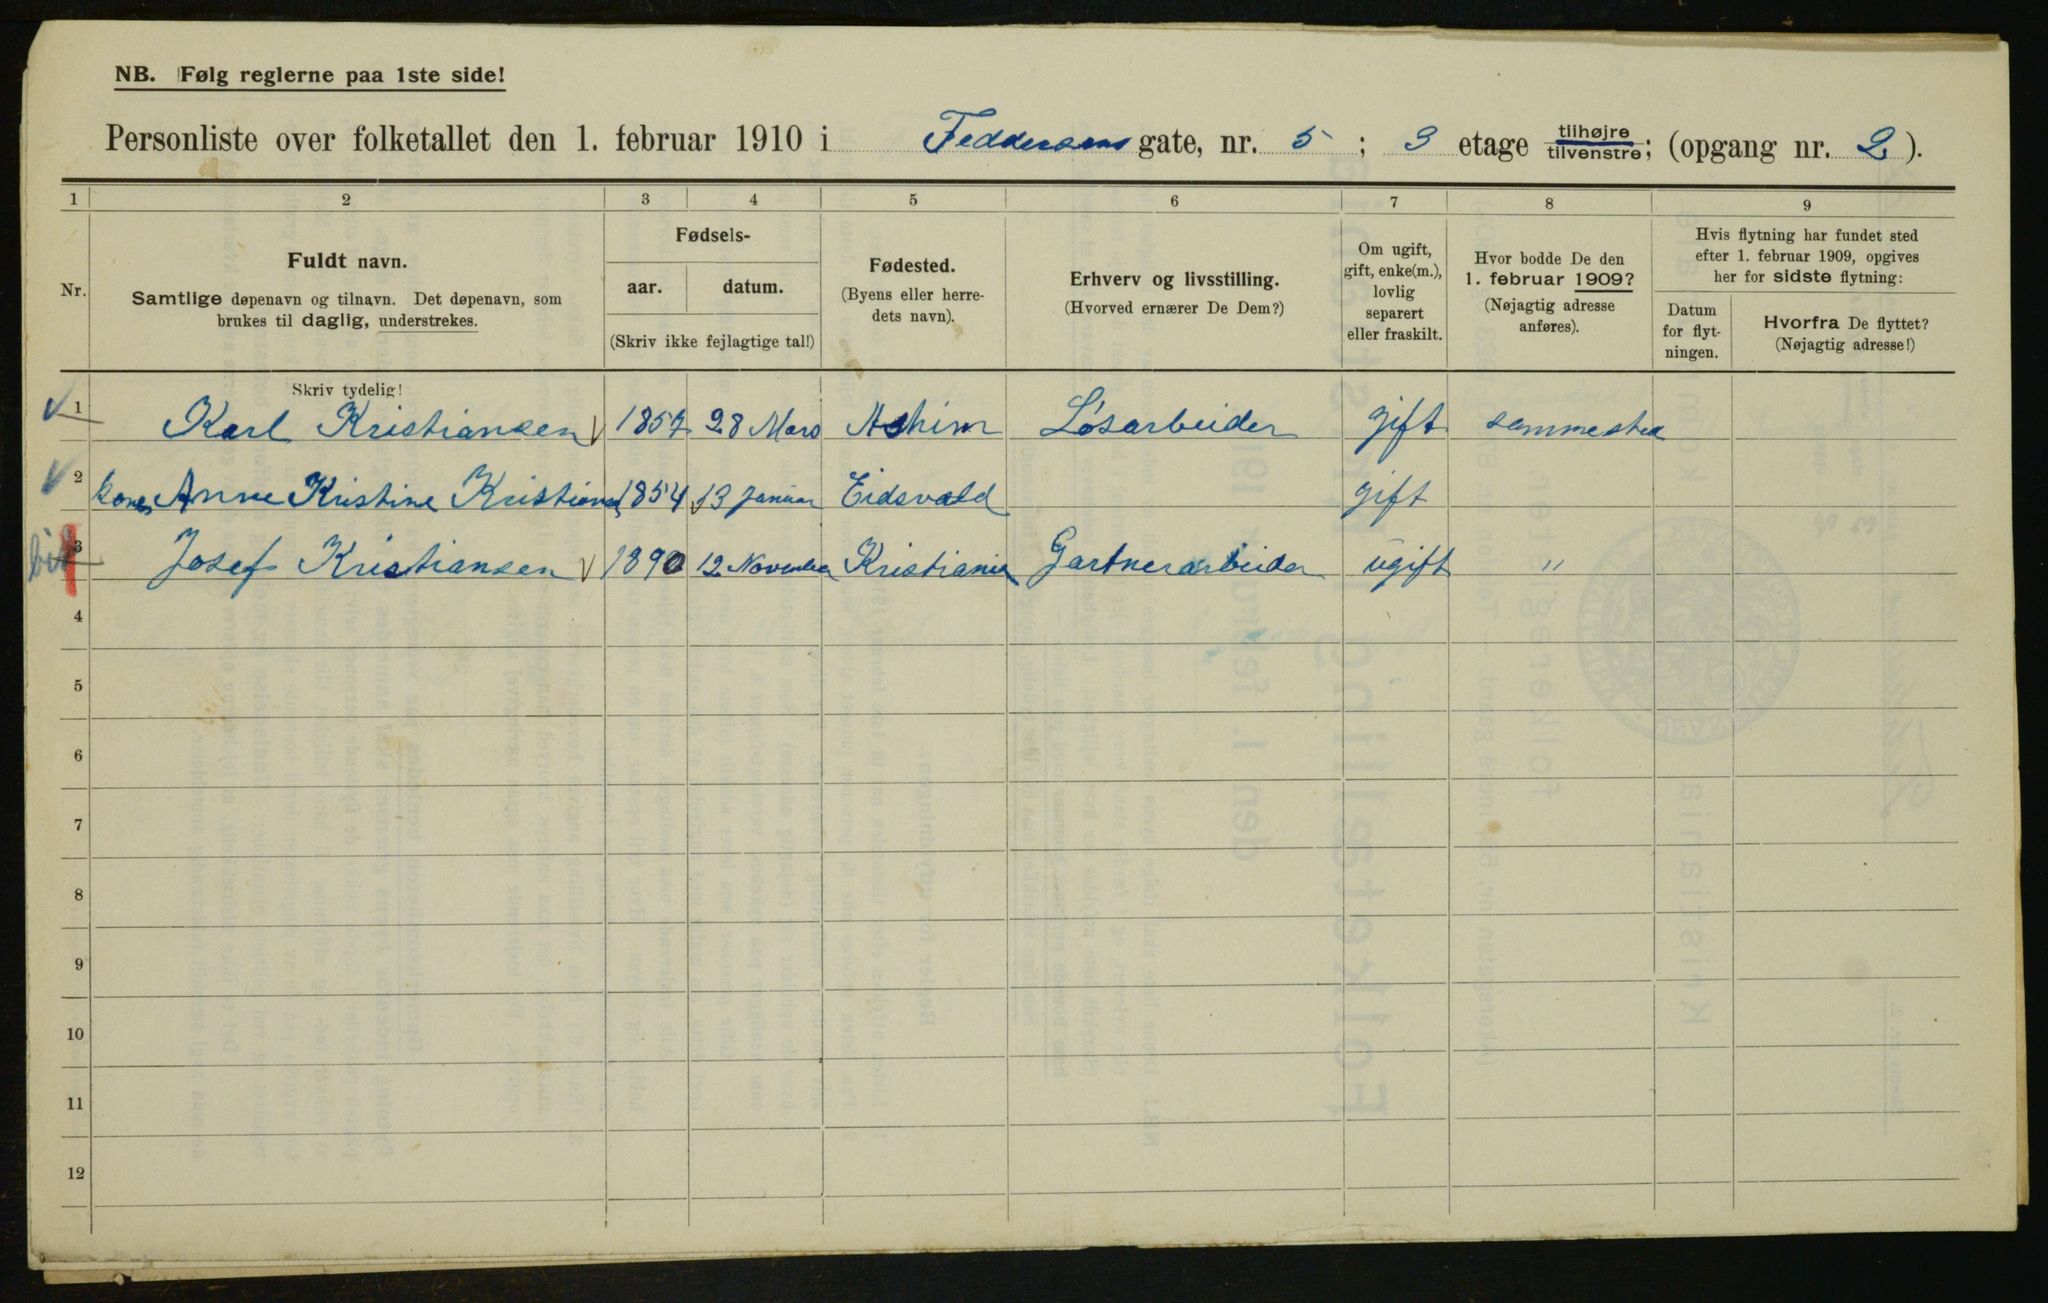 NB. Følg reglerne paa 1ste side!
Personliste over folketallet den 1. februar 1910 i Feddersens gate, nr. 5 ; 3 etage tilhøjre tilvenstre; (opgang nr. 2).
1 2 3 4 5 6 7 8 9
Nr.
Fuldt navn.
Samtlige døpenavn og tilnavn. Det døpenavn, som
brukes til daglig, understrekes.
Fødsels-
aar. datum.
(Skriv ikke fejlagtige tal!)
Fødested.
(Byens eller herre-
dets navn).
Erhverv og livsstilling.
(Hvorved ernærer De Dem?)
Om ugift,
gift, enke(m.),
lovlig
separert
eller fraskilt.
Hvor bodde De den
1. februar 1909?
(Nøjagtig adresse
anføres).
Hvis flytning har fundet sted
efter 1. februar 1909, opgives
her for sidste flytning:
Datum
for flyt-
ningen.
Hvorfra De flyttet?
(Nøjagtig adresse!)
Skriv tydelig!
1 Karl Kristiansen 1857 28 Mars Askim Løsarbeider gift sammested
2 kones Anne Kristine Kristiansen 1854 13 Januar Eidsvold gift
3 Josef Kristiansen 1890 12 November Kristiania Gartnerarbeider ugift "
4
5
6
7
8
9
10
11
12